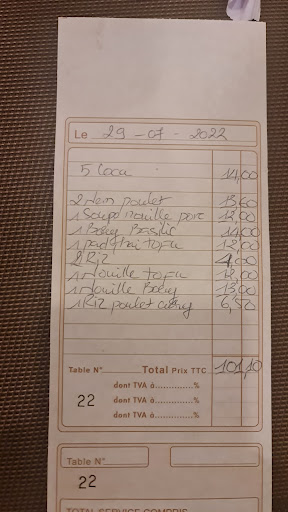 Le 29-07-2022
5 Coca 14,00
2 Nem poulet 13,60
1 Soupe nouille porc 12,00
1 Boeuf Basilic 14,00
1 pad thai tofu 12,00
2 Riz 4,00
1 Nouille tofu 12,00
1 Nouille Boeuf 13,00
1 Riz poulet curry 6,50
Table N° Total Prix TTC 101,10
dont TVA à.............%
22 dont TVA à.............%
dont TVA à.............%
Table N°
22
TOTAL SERVICE COMPRIS